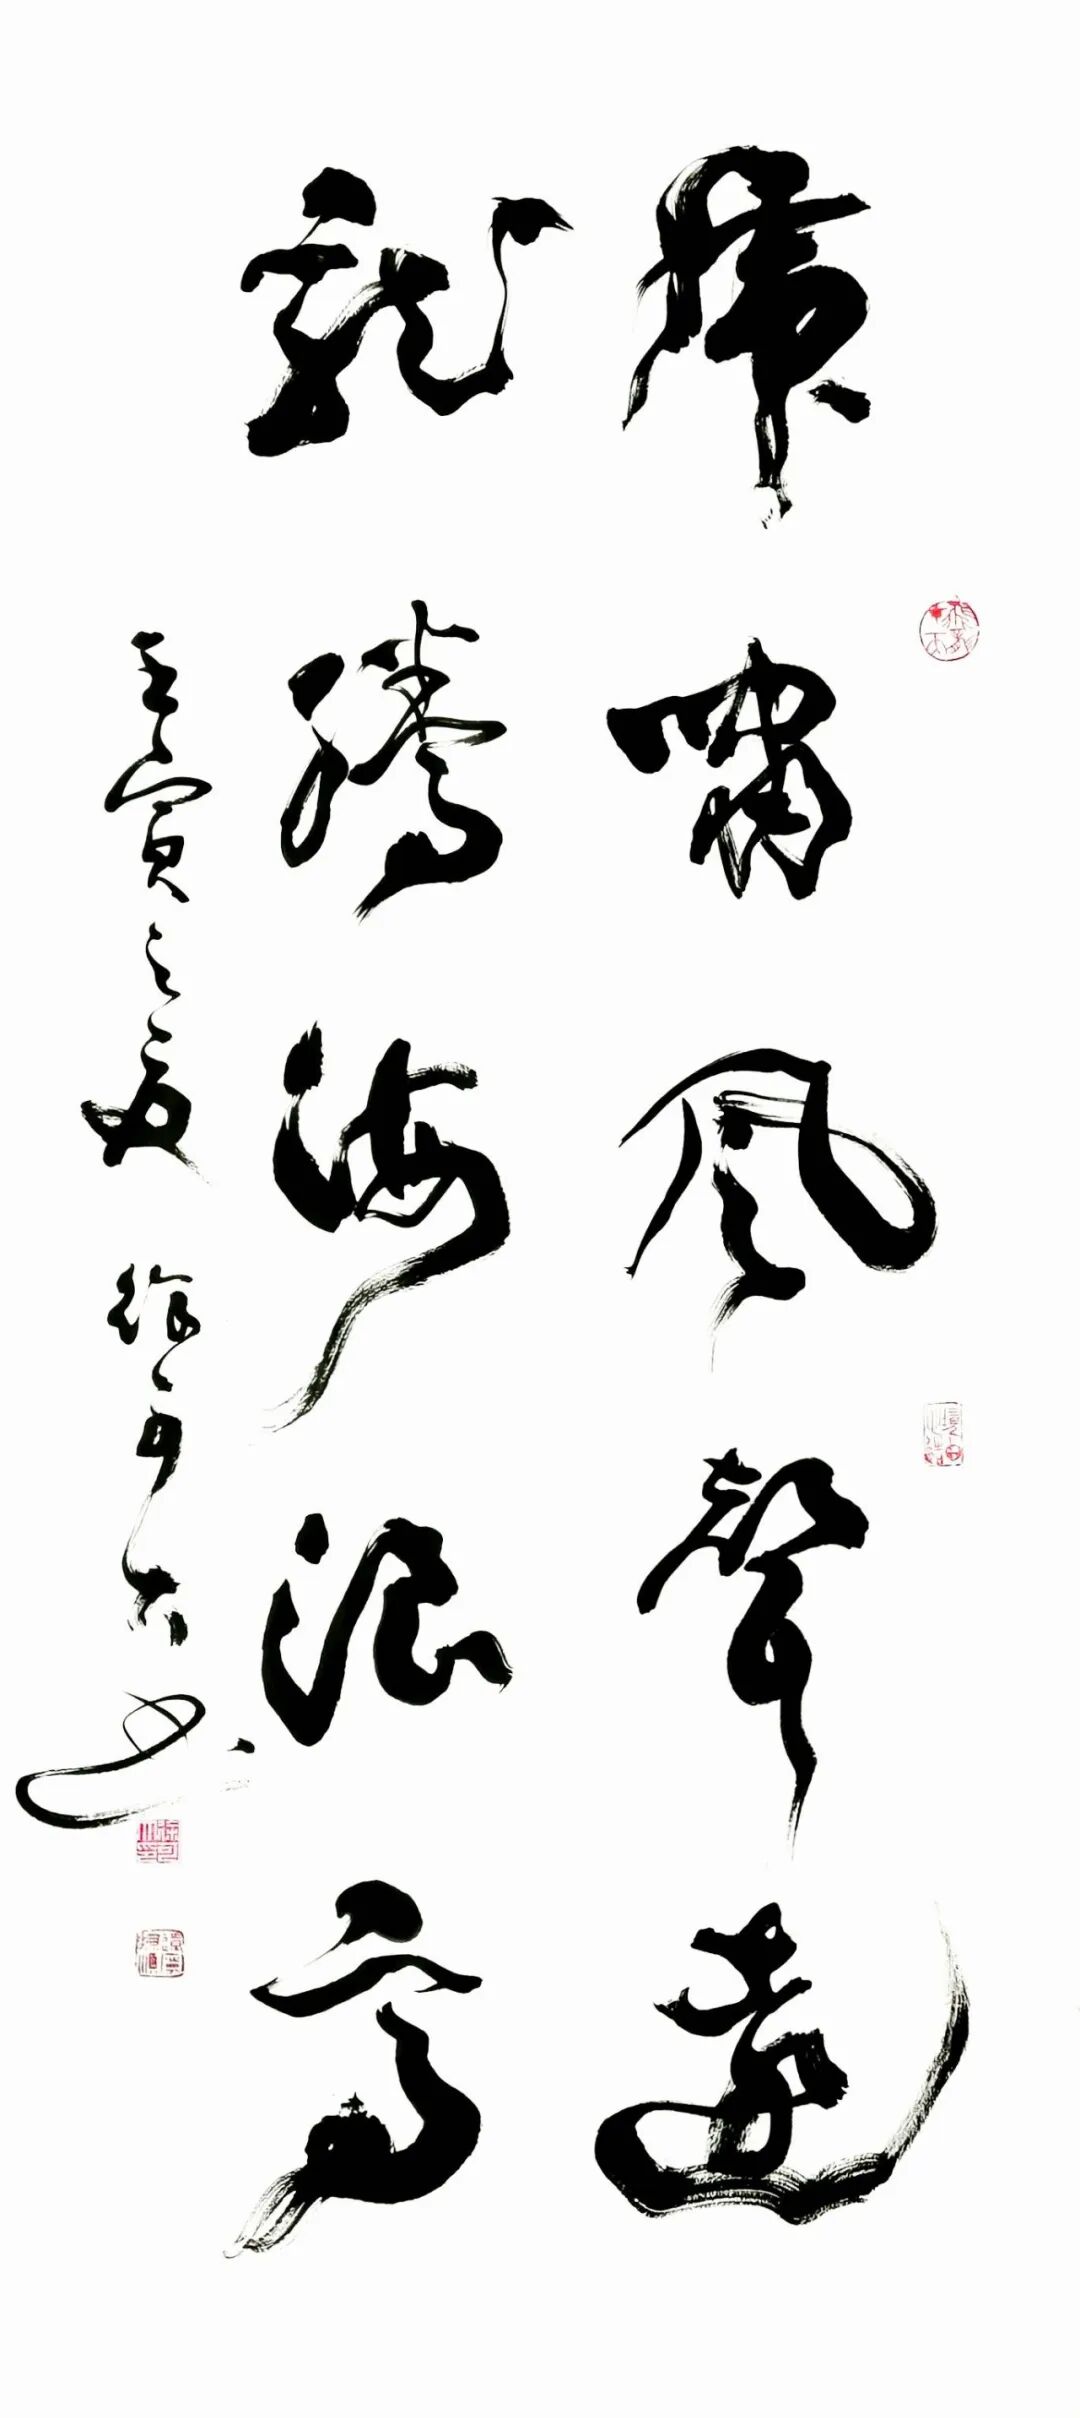 虎啸风声远
龙腾海浪高
壬寅之夏 徐 书